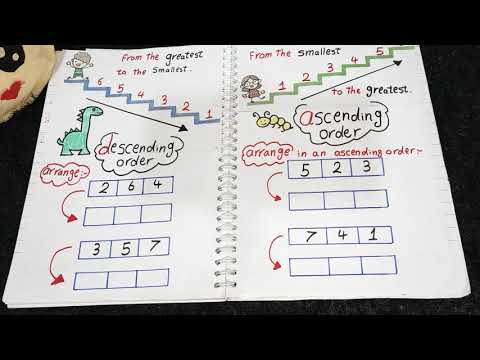 From the greatest
to the smallest.
6 5 4 3 2 1
descending
order
arrange:-
2 6 4
3 5 7
From the smallest
1 2 3 4 5
to the greatest.
ascending
order
arrange in an ascending order:-
5 2 3
7 4 1